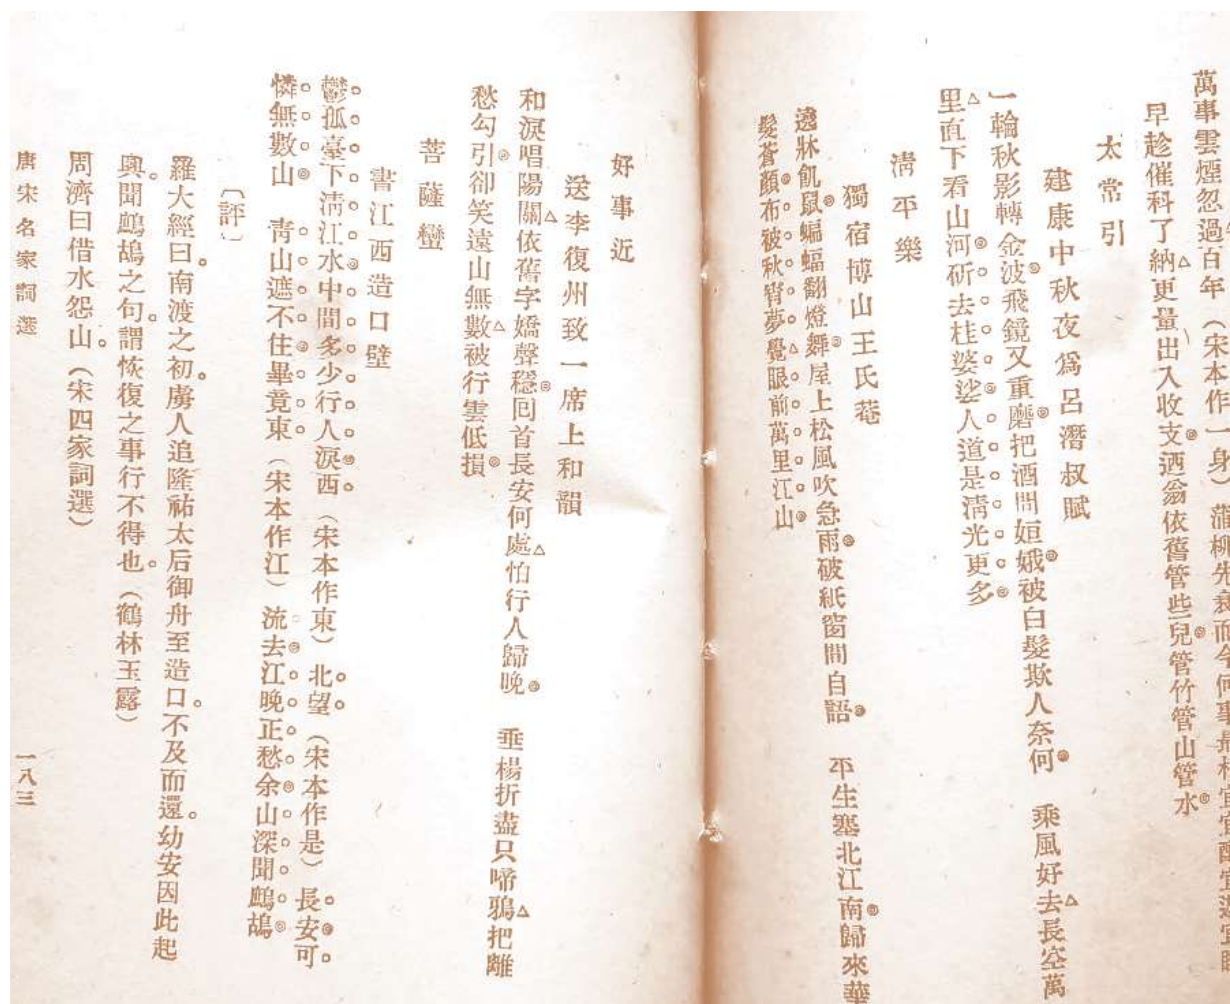 萬事雲煙忽過百年（宋本作一身）蒲柳先衰而今何事最相宜宜醉宜游宜睡
早趁催科了納更量出入收支迺翁依舊管些兒管竹管山管水
太常引
建康中秋夜爲呂潛叔賦
一輪秋影轉金波飛鏡又重磨把酒問姮娥被白髮欺人奈何　乘風好去長空萬
里直下看山河斫去桂婆娑人道是淸光更多
淸平樂
獨宿博山王氏菴
遶牀飢鼠蝙蝠翻燈舞屋上松風吹急雨破紙窗間自語　平生塞北江南歸來華
髮蒼顏布被秋宵夢覺眼前萬里江山
好事近
送李復州致一席上和韻
和淚唱陽關依舊字嬌聲穩回首長安何處怕行人歸晚　垂楊折盡只啼鴉把離
愁勾引卻笑遠山無數被行雲低損
菩薩蠻
書江西造口壁
鬱孤臺下淸江水中間多少行人淚西（宋本作東）北望（宋本作是）長安可
憐無數山　靑山遮不住畢竟東（宋本作江）流去江晚正愁余山深聞鷓鴣
〔評〕
羅大經曰南渡之初。虜人追隆祐太后御舟至造口。不及而還。幼安因此起
興。聞鷓鴣之句。謂恢復之事行不得也。（鶴林玉露）
周濟曰借水怨山。（宋四家詞選）
唐宋名家詞選
一八三